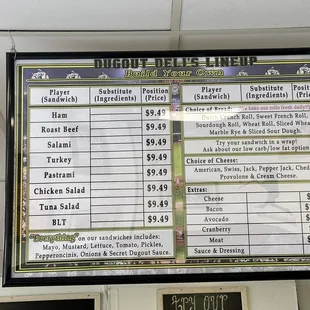 DUGOUT DELI'S LINEUP
Build Your Own
Player (Sandwich) Substitute (Ingredients) Position (Price)
Ham $9.49
Roast Beef $9.49
Salami $9.49
Turkey $9.49
Pastrami $9.49
Chicken Salad $9.49
Tuna Salad $9.49
BLT $9.49
"Everything" on our sandwiches includes:
Mayo, Mustard, Lettuce, Tomato, Pickles,
Pepperoncinis, Onions & Secret Dugout Sauce.
Player (Sandwich) Substitute (Ingredients) Position (Price)
Choice of Bread: We bake our rolls fresh daily!
Dutch Crunch Roll, Sweet French Roll,
Sourdough Roll, Wheat Roll, Sliced Wheat
Marble Rye & Sliced Sour Dough.
Try your sandwich in a wrap!
Ask about our low carb/low fat option
Choice of Cheese:
American, Swiss, Jack, Pepper Jack, Ched
Provolone & Cream Cheese.
Extras:
Cheese
Bacon $
Avocado
Cranberry
Meat $
Sauce & Dressing
TRY OUR